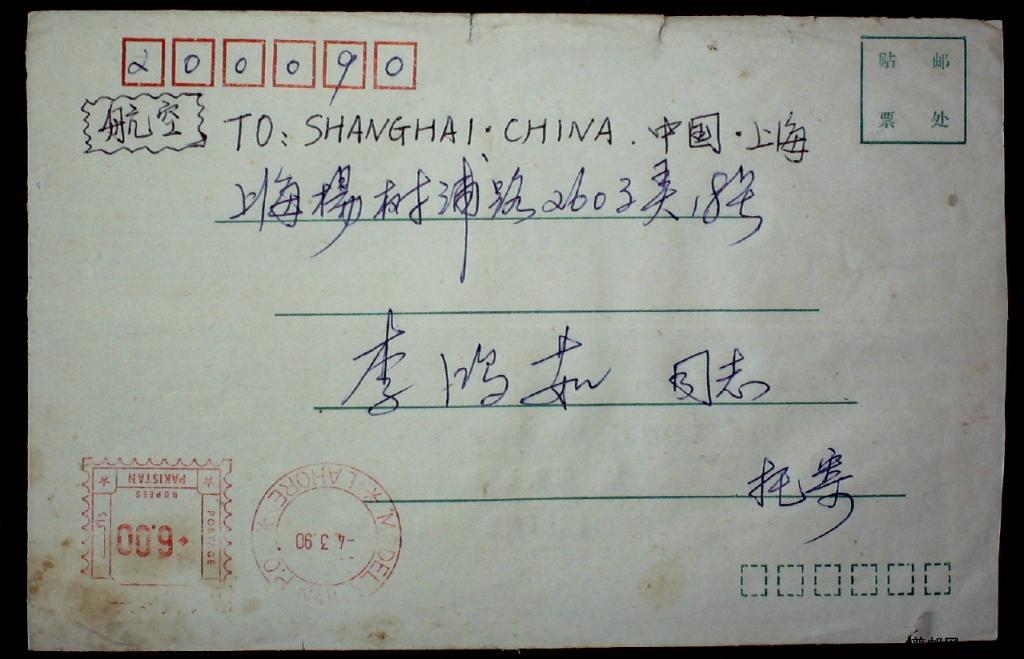 200090
贴 邮
票 处
航空
TO: SHANGHAI·CHINA. 中国·上海
上海楊树浦路2603弄18号
李鸿茹 同志
托寄
PAKISTAN
RUPEES
POSTAGE
6.00
LAHORE
-4.3.90